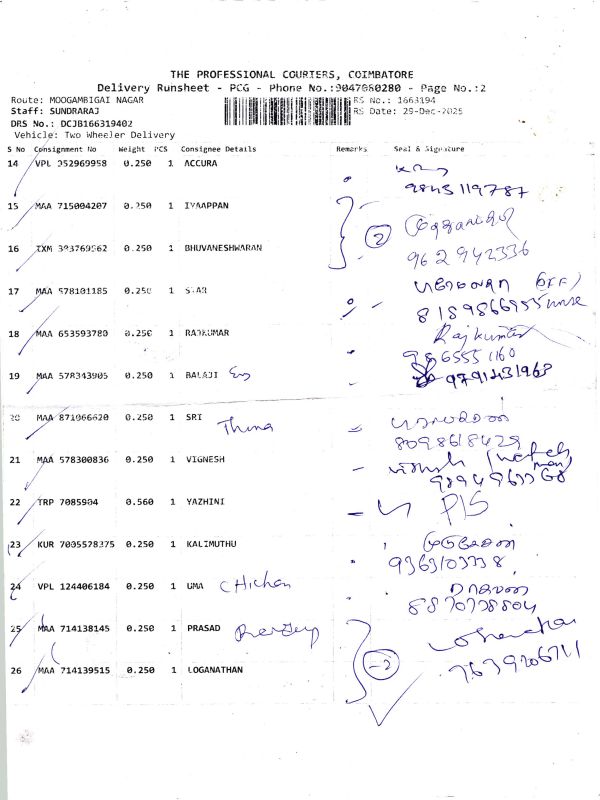 THE PROFESSIONAL COURIERS, COIMBATORE
Delivery Runsheet - PCG - Phone No.:9047080280 - Page No.:2
Route: MOOGAMBIGAI NAGAR RS No.: 1663194
Staff: SUNDRARAJ RS Date: 29-Dec-2025
DRS No.: DCJB166319402
Vehicle: Two Wheeler Delivery
S No Consignment No Weight PCS Consignee Details Remarks Seal & Signature
14 VPL 352969958 0.250 1 ACCURA
9843119787
15 MAA 715004207 0.250 1 IYAAPPAN
2
16 IXM 383769562 0.250 1 BHUVANESHWARAN
962942336
17 MAA 578101185 0.250 1 STAR
18 MAA 653593780 0.250 1 RAJKUMAR Rajkumar
9865551160
19 MAA 578343905 0.250 1 BALAJI 9791431968
20 MAA 871066620 0.250 1 SRI Thuna
8098618429
21 MAA 578300836 0.250 1 VIGNESH
22 TRP 7085904 0.560 1 YAZHINI P/S
23 KUR 7005528375 0.250 1 KALIMUTHU
9363103338
24 VPL 124406184 0.250 1 UMA
8870738804
25 MAA 714138145 0.250 1 PRASAD
26 MAA 714139515 0.250 1 LOGANATHAN
7639206711